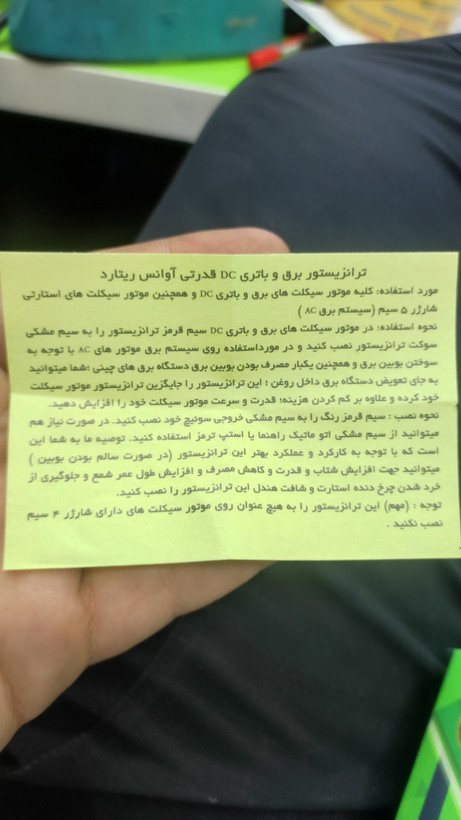 ترانزیستور برق و باتری DC قدرتی آوانس ریتارد
مورد استفاده: کلیه موتور سیکلت های برق و باتری DC و همچنین موتور سیکلت های استارتی
شارژر ۵ سیم (سیستم برق AC )
نحوه استفاده: در موتور سیکلت های برق و باتری DC سیم قرمز ترانزیستور را به سیم مشکی
سوکت ترانزیستور نصب کنید و در مورداستفاده روی سیستم برق موتور های AC با توجه به
سوختن بوبین برق و همچنین یکبار مصرف بودن بوبین برق دستگاه برق های چینی ؛شما میتوانید
به جای تعویض دستگاه برق داخل روغن ؛ این ترانزیستور را جایگزین ترانزیستور موتور سیکلت
خود کرده و علاوه بر کم کردن هزینه؛ قدرت و سرعت موتور سیکلت خود را افزایش دهید.
نحوه نصب : سیم قرمز رنگ را به سیم مشکی خروجی سوئیچ خود نصب کنید. در صورت نیاز هم
میتوانید از سیم مشکی اتو ماتیک راهنما یا استپ ترمز استفاده کنید. توصیه ما به شما این
است که با توجه به کارکرد و عملکرد بهتر این ترانزیستور (در صورت سالم بودن بوبین )
میتوانید جهت افزایش شتاب و قدرت و کاهش مصرف و افزایش طول عمر شمع و جلوگیری از
خرد شدن چرخ دنده استارت و شافت هندل این ترانزیستور را نصب کنید.
توجه : (مهم) این ترانزیستور را به هیچ عنوان روی موتور سیکلت های دارای شارژر ۴ سیم
نصب نکنید .